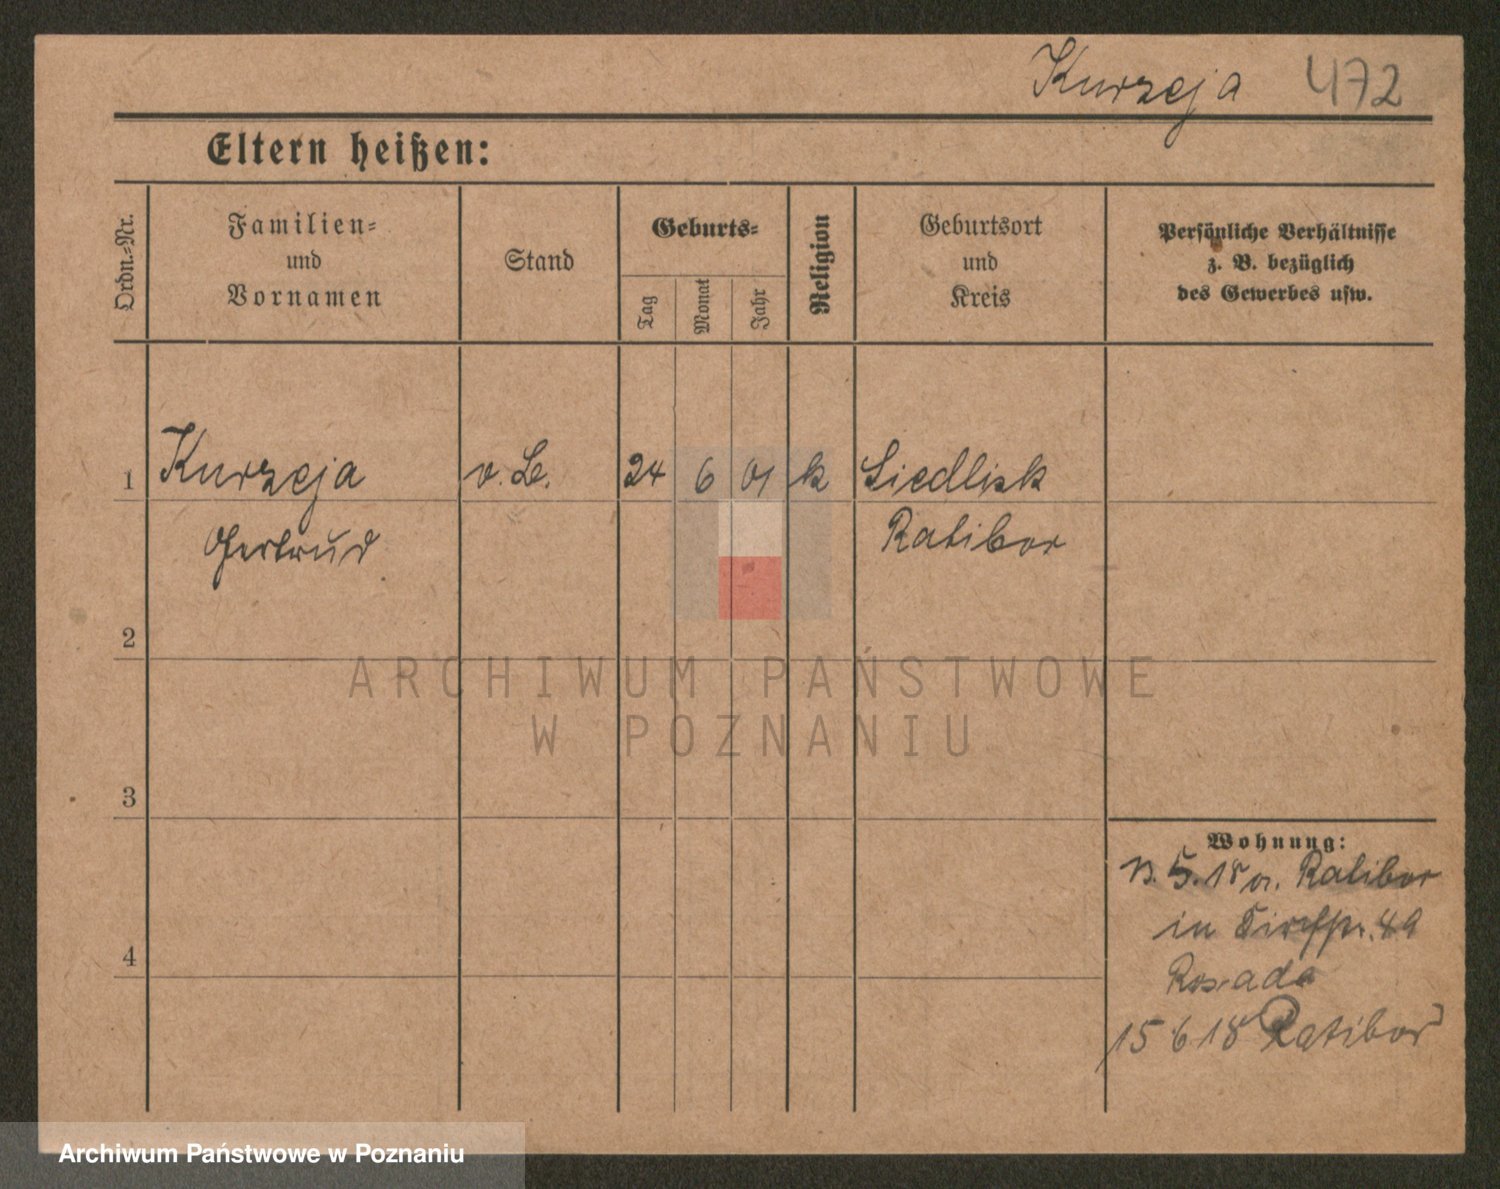 Kurzeja 472
Eltern heißen:
Ordn.-Nr.
Familien-
und
Vornamen
Stand
Geburts-
Tag
Monat
Jahr
Religion
Geburtsort
und
Kreis
Persönliche Verhältnisse
z. B. bezüglich
des Gewerbes usw.
1 Kurzeja 24 6 01 k Siedlisk
Gertrud Ratibor
2
3
4
Wohnung:
5. 18 Ratibor
in
15 6 18 Ratibor
ARCHIWUM PAŃSTWOWE
W POZNANIU
Archiwum Państwowe w Poznaniu